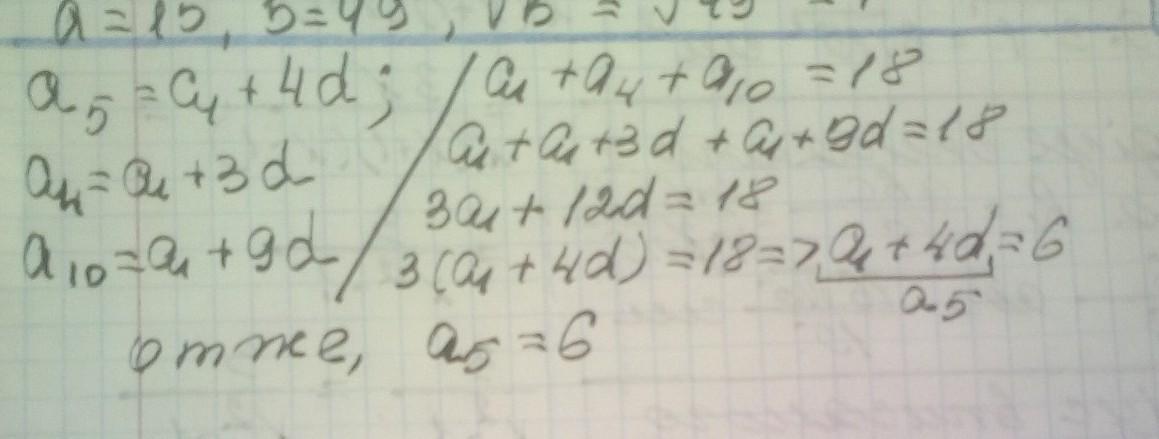 a = 15, b = 49, √b = √49 =
a₅ = a₁ + 4d;
a₄ = a₁ + 3d
a₁₀ = a₁ + 9d
a₁ + a₄ + a₁₀ = 18
a₁ + a₁ + 3d + a₁ + 9d = 18
3a₁ + 12d = 18
3(a₁ + 4d) = 18 => a₁ + 4d = 6
a₅
отже, a₅ = 6